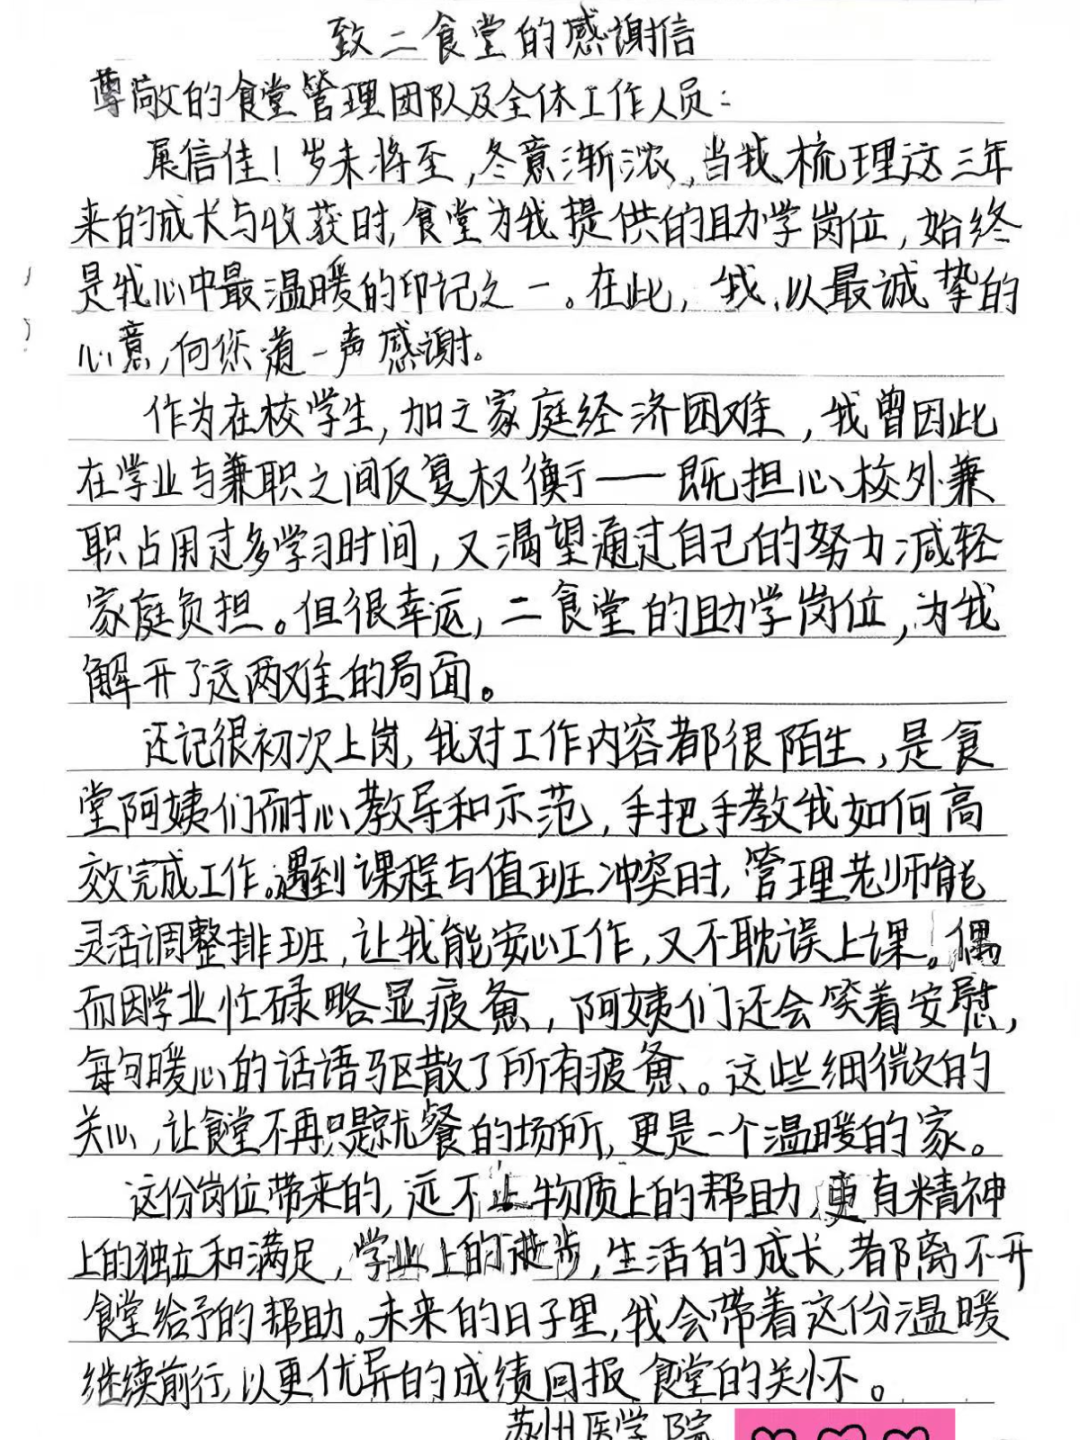 致二食堂的感谢信
尊敬的食堂管理团队及全体工作人员：
展信佳！岁末将至，冬意渐浓，当我梳理这三年
来的成长与收获时，食堂为我提供的助学岗位，始终
是我心中最温暖的印记之一。在此，我以最诚挚的
心意，向您道一声感谢。
作为在校学生，加之家庭经济困难，我曾因此
在学业与兼职之间反复权衡——既担心校外兼
职占用过多学习时间，又渴望通过自己的努力减轻
家庭负担。但很幸运，二食堂的助学岗位，为我
解开了这两难的局面。
还记很初次上岗，我对工作内容都很陌生，是食
堂阿姨们耐心教导和示范，手把手教我如何高
效完成工作。遇到课程与值班冲突时，管理老师能
灵活调整排班，让我能安心工作，又不耽误上课。偶
而因学业忙碌略显疲惫，阿姨们还会笑着安慰，
每句暖心的话语驱散了所有疲惫。这些细微的
关心，让食堂不再只是就餐的场所，更是一个温暖的家。
这份岗位带来的，远不止物质上的帮助，更有精神
上的独立和满足，学业上的进步，生活的成长，都离不开
食堂给予的帮助。未来的日子里，我会带着这份温暖
继续前行，以更优异的成绩回报食堂的关怀。
苏州医学院